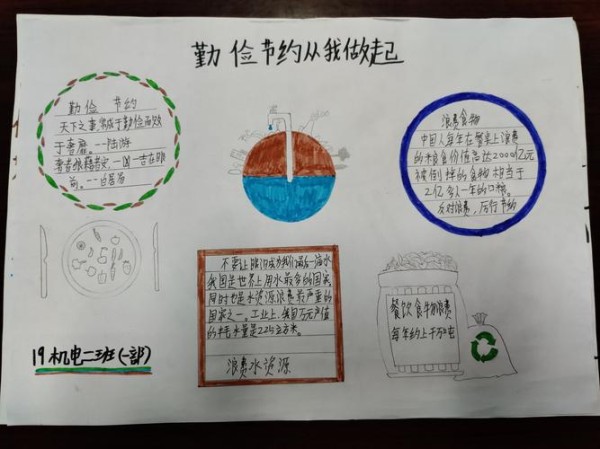 勤俭节约从我做起
勤俭 节约
天下之事,常成于勤俭而败
于奢靡。--陆游
奢者狼藉俭者安,一凶一吉在眼
前。--白居易
浪费食物
中国人每年在餐桌上浪费
的粮食价值高达2000亿元
被倒掉的食物相当于
2亿多人一年的口粮。
反对浪费,厉行节约
不要让眼泪成为我们最后一滴水
我国是世界上用水最多的国家
同时也是水资源浪费最严重的
国家之一。工业上,我国万元产值
的耗水量是225立方米。
浪费水资源
餐饮食物浪费
每年约上千万吨
19机电二班(一部)